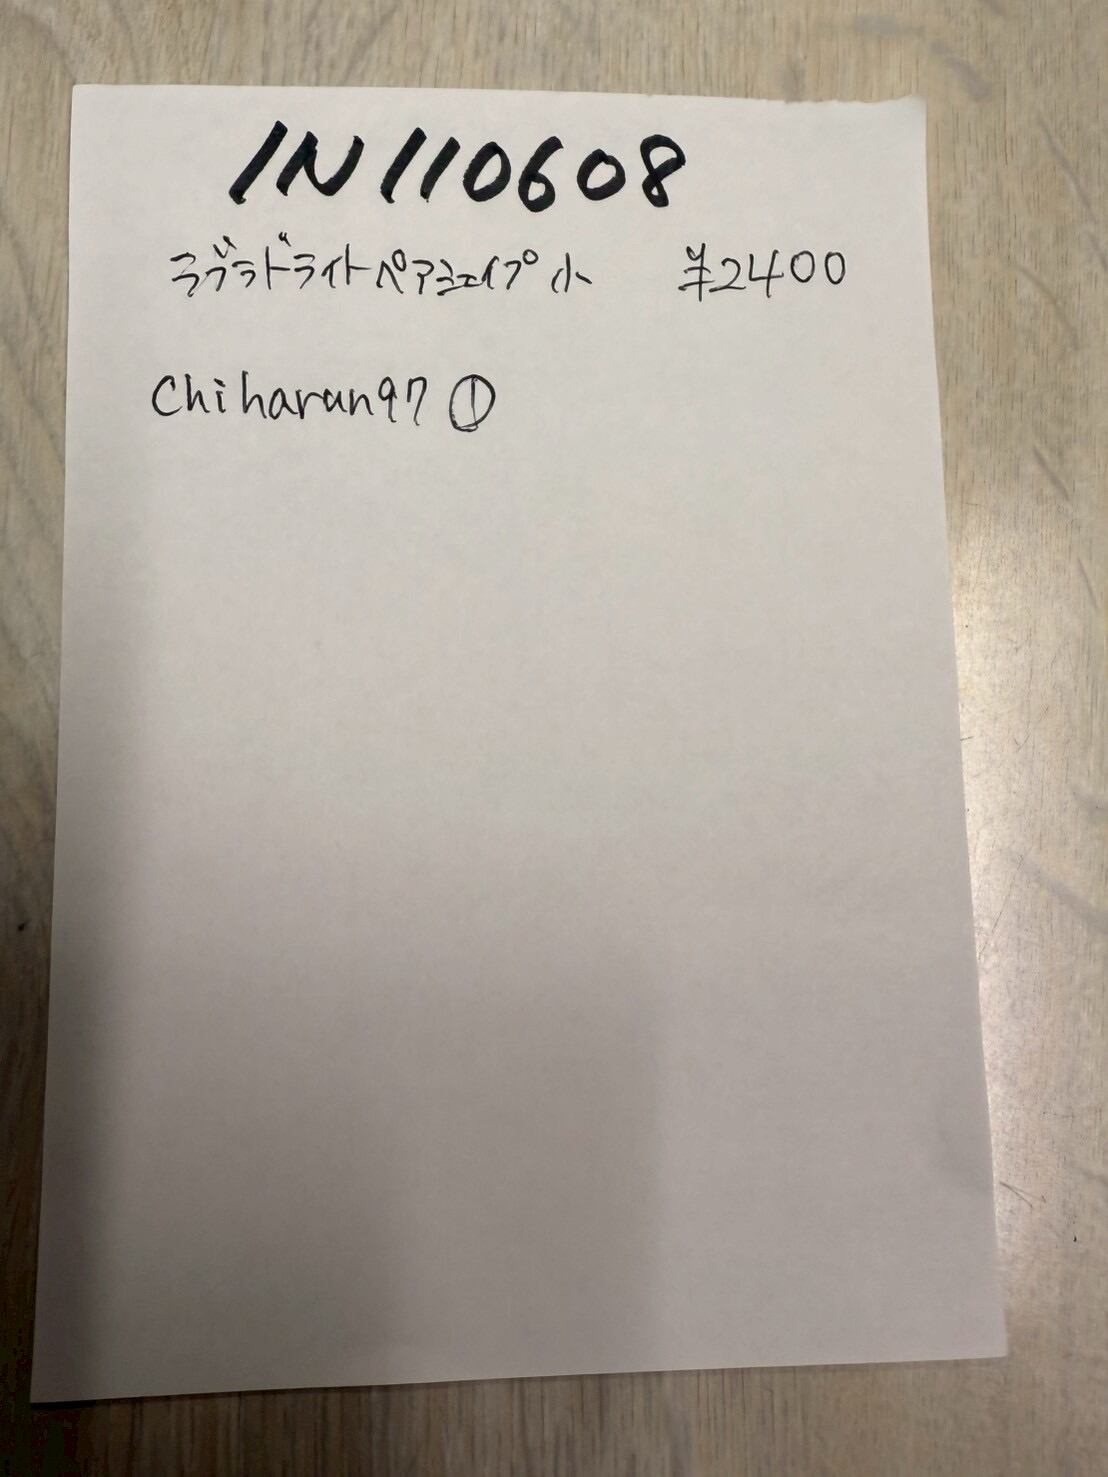 IN110608
ラブラドライトペアシェイプ 小 ¥2400
Chiharun97 ①